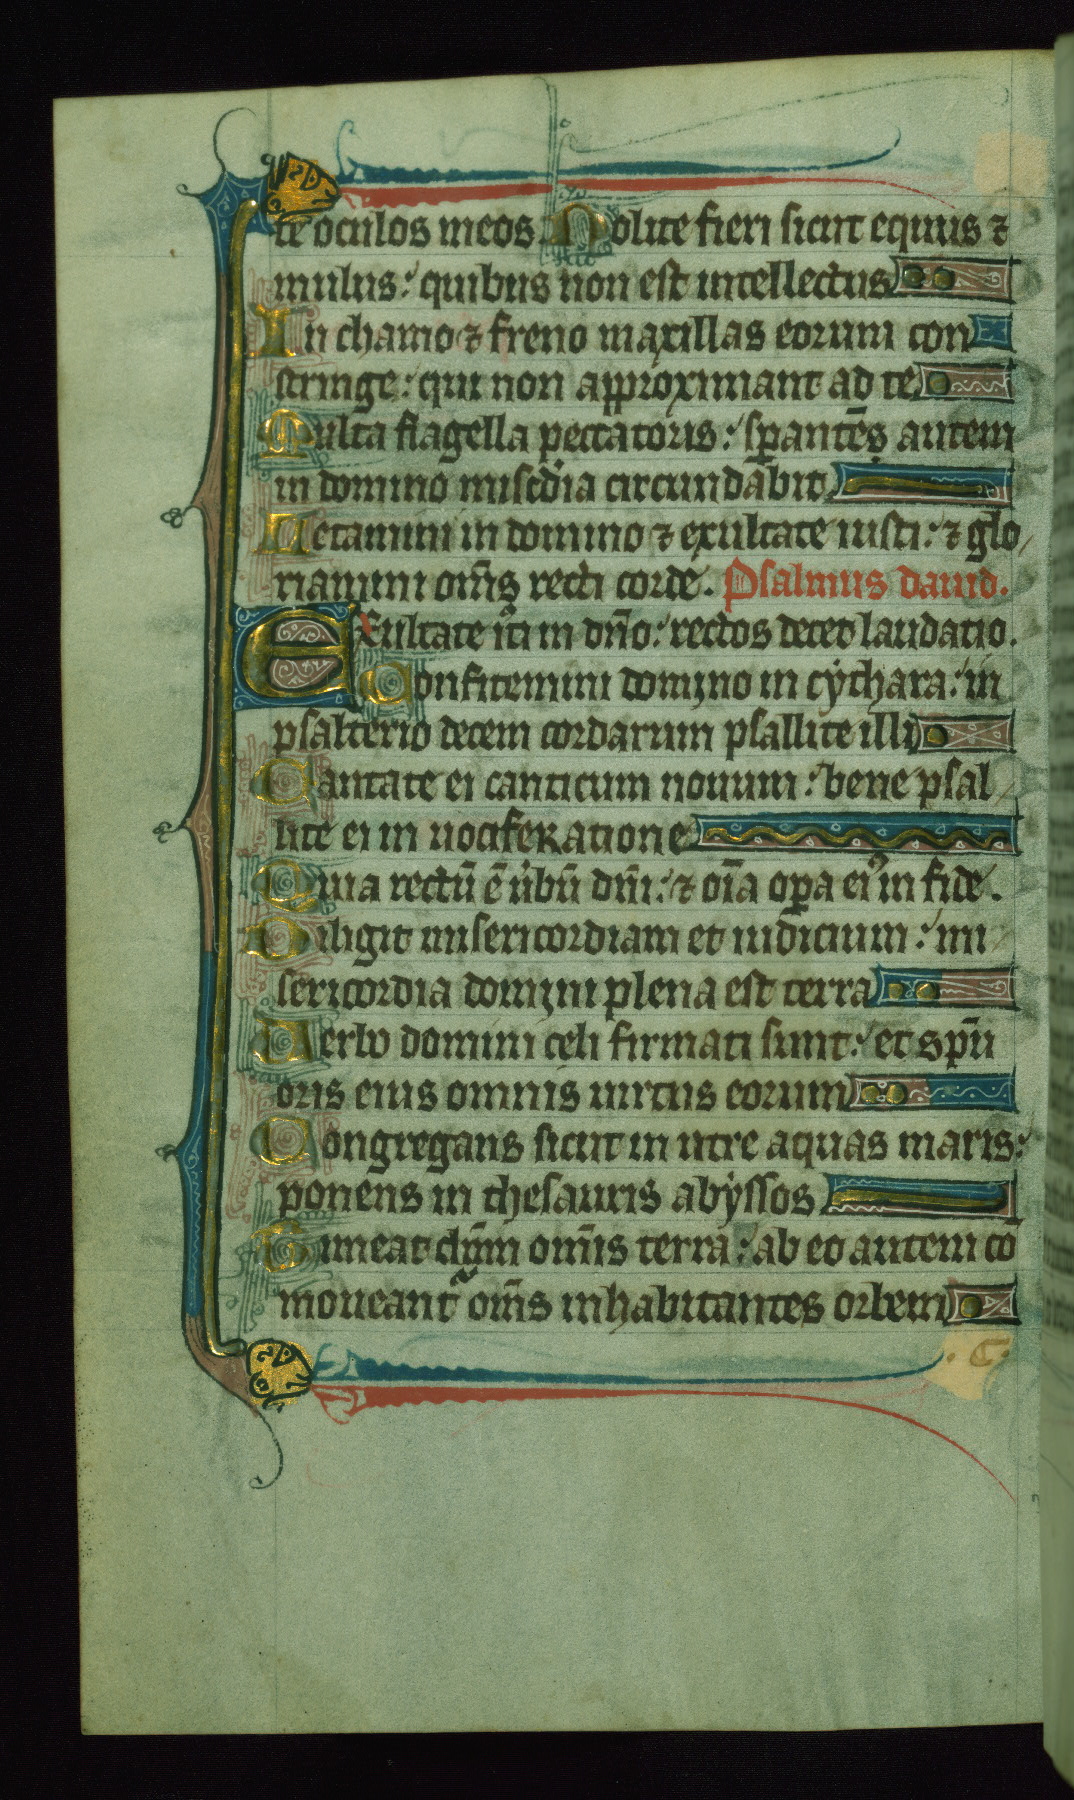 te oculos meos. Nolite fieri sicut equus ⁊
mulus: quibus non est intellectus
In chamo ⁊ freno maxillas eorum con
stringe: qui non approximant ad te
Multa flagella peccatoris: sꝑantes autem
in domino mis̅cdia circundabit
Letamini in domino ⁊ exultate iusti: ⁊ glo
riamini om̅s recti corde. Psalmus dauid.
Exultate iͥti in dn̅o: rectos decet laudatio.
Confitemini domino in cẏthara: in
psalterio decem cordarum psallite illi
Cantate ei canticum nouum: bene psal
lite ei in uociferatione
Quia rectū ē ūbū dn̅i: ⁊ oīa oꝑa eiꝰ in fide.
Diligit misericordiam et iudicium: mi
sericordia domini plena est terra
Verbo domini celi firmati sunt: et sp̅u
oris eius omnis uirtus eorum
Congregans sicut in utre aquas maris:
ponens in thesauris abẏssos
Timeat dn̅m om̅is terra: ab eo autem cō
moueant᷑ om̅s inhabitantes orbem
. C.